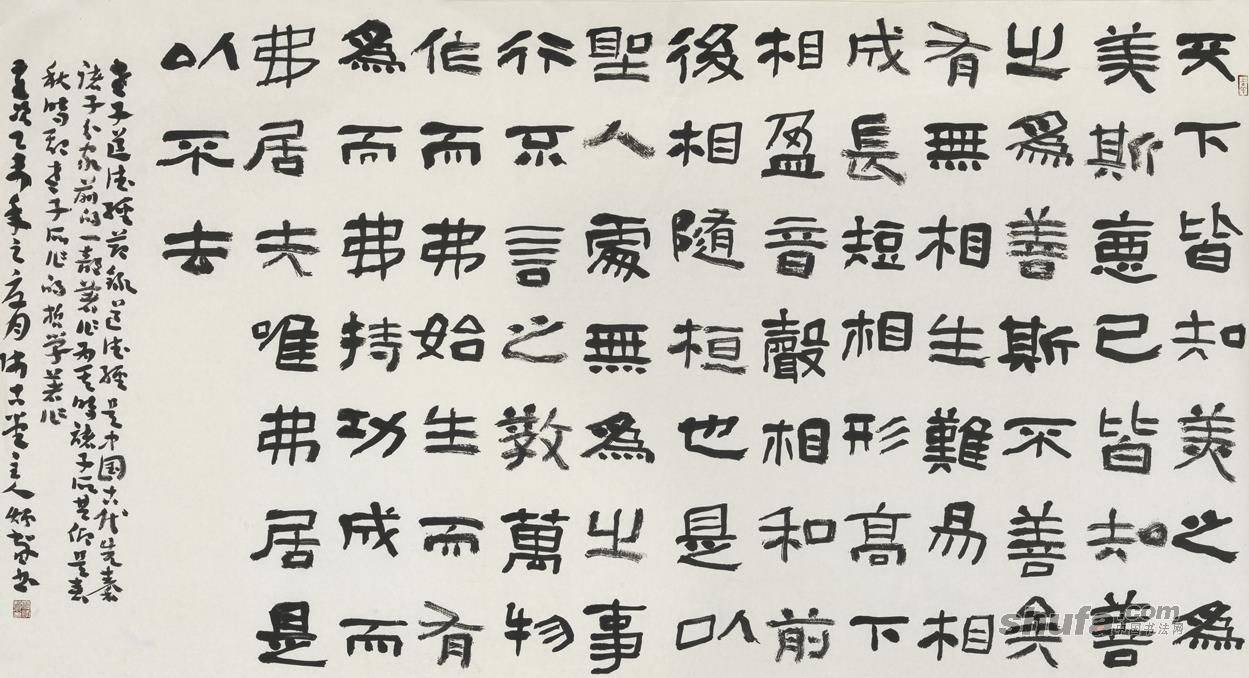 天下皆知美之爲
美斯惡已皆知善
之爲善斯不善矣
有無相生難易相
成長短相形高下
相盈音聲相和前
後相隨桓也是以
聖人處無爲之事
行不言之教萬物
作而弗始生而有
爲而弗持功成而
弗居夫唯弗居是
以不去
老子道德經 道德經是中国古代先秦
諸子分家前的一部著作为其時諸子所共仰是春
秋時期老子所作的哲学著作
乙未年之夏月 古堂主人 书
shufa.com
中国书法网